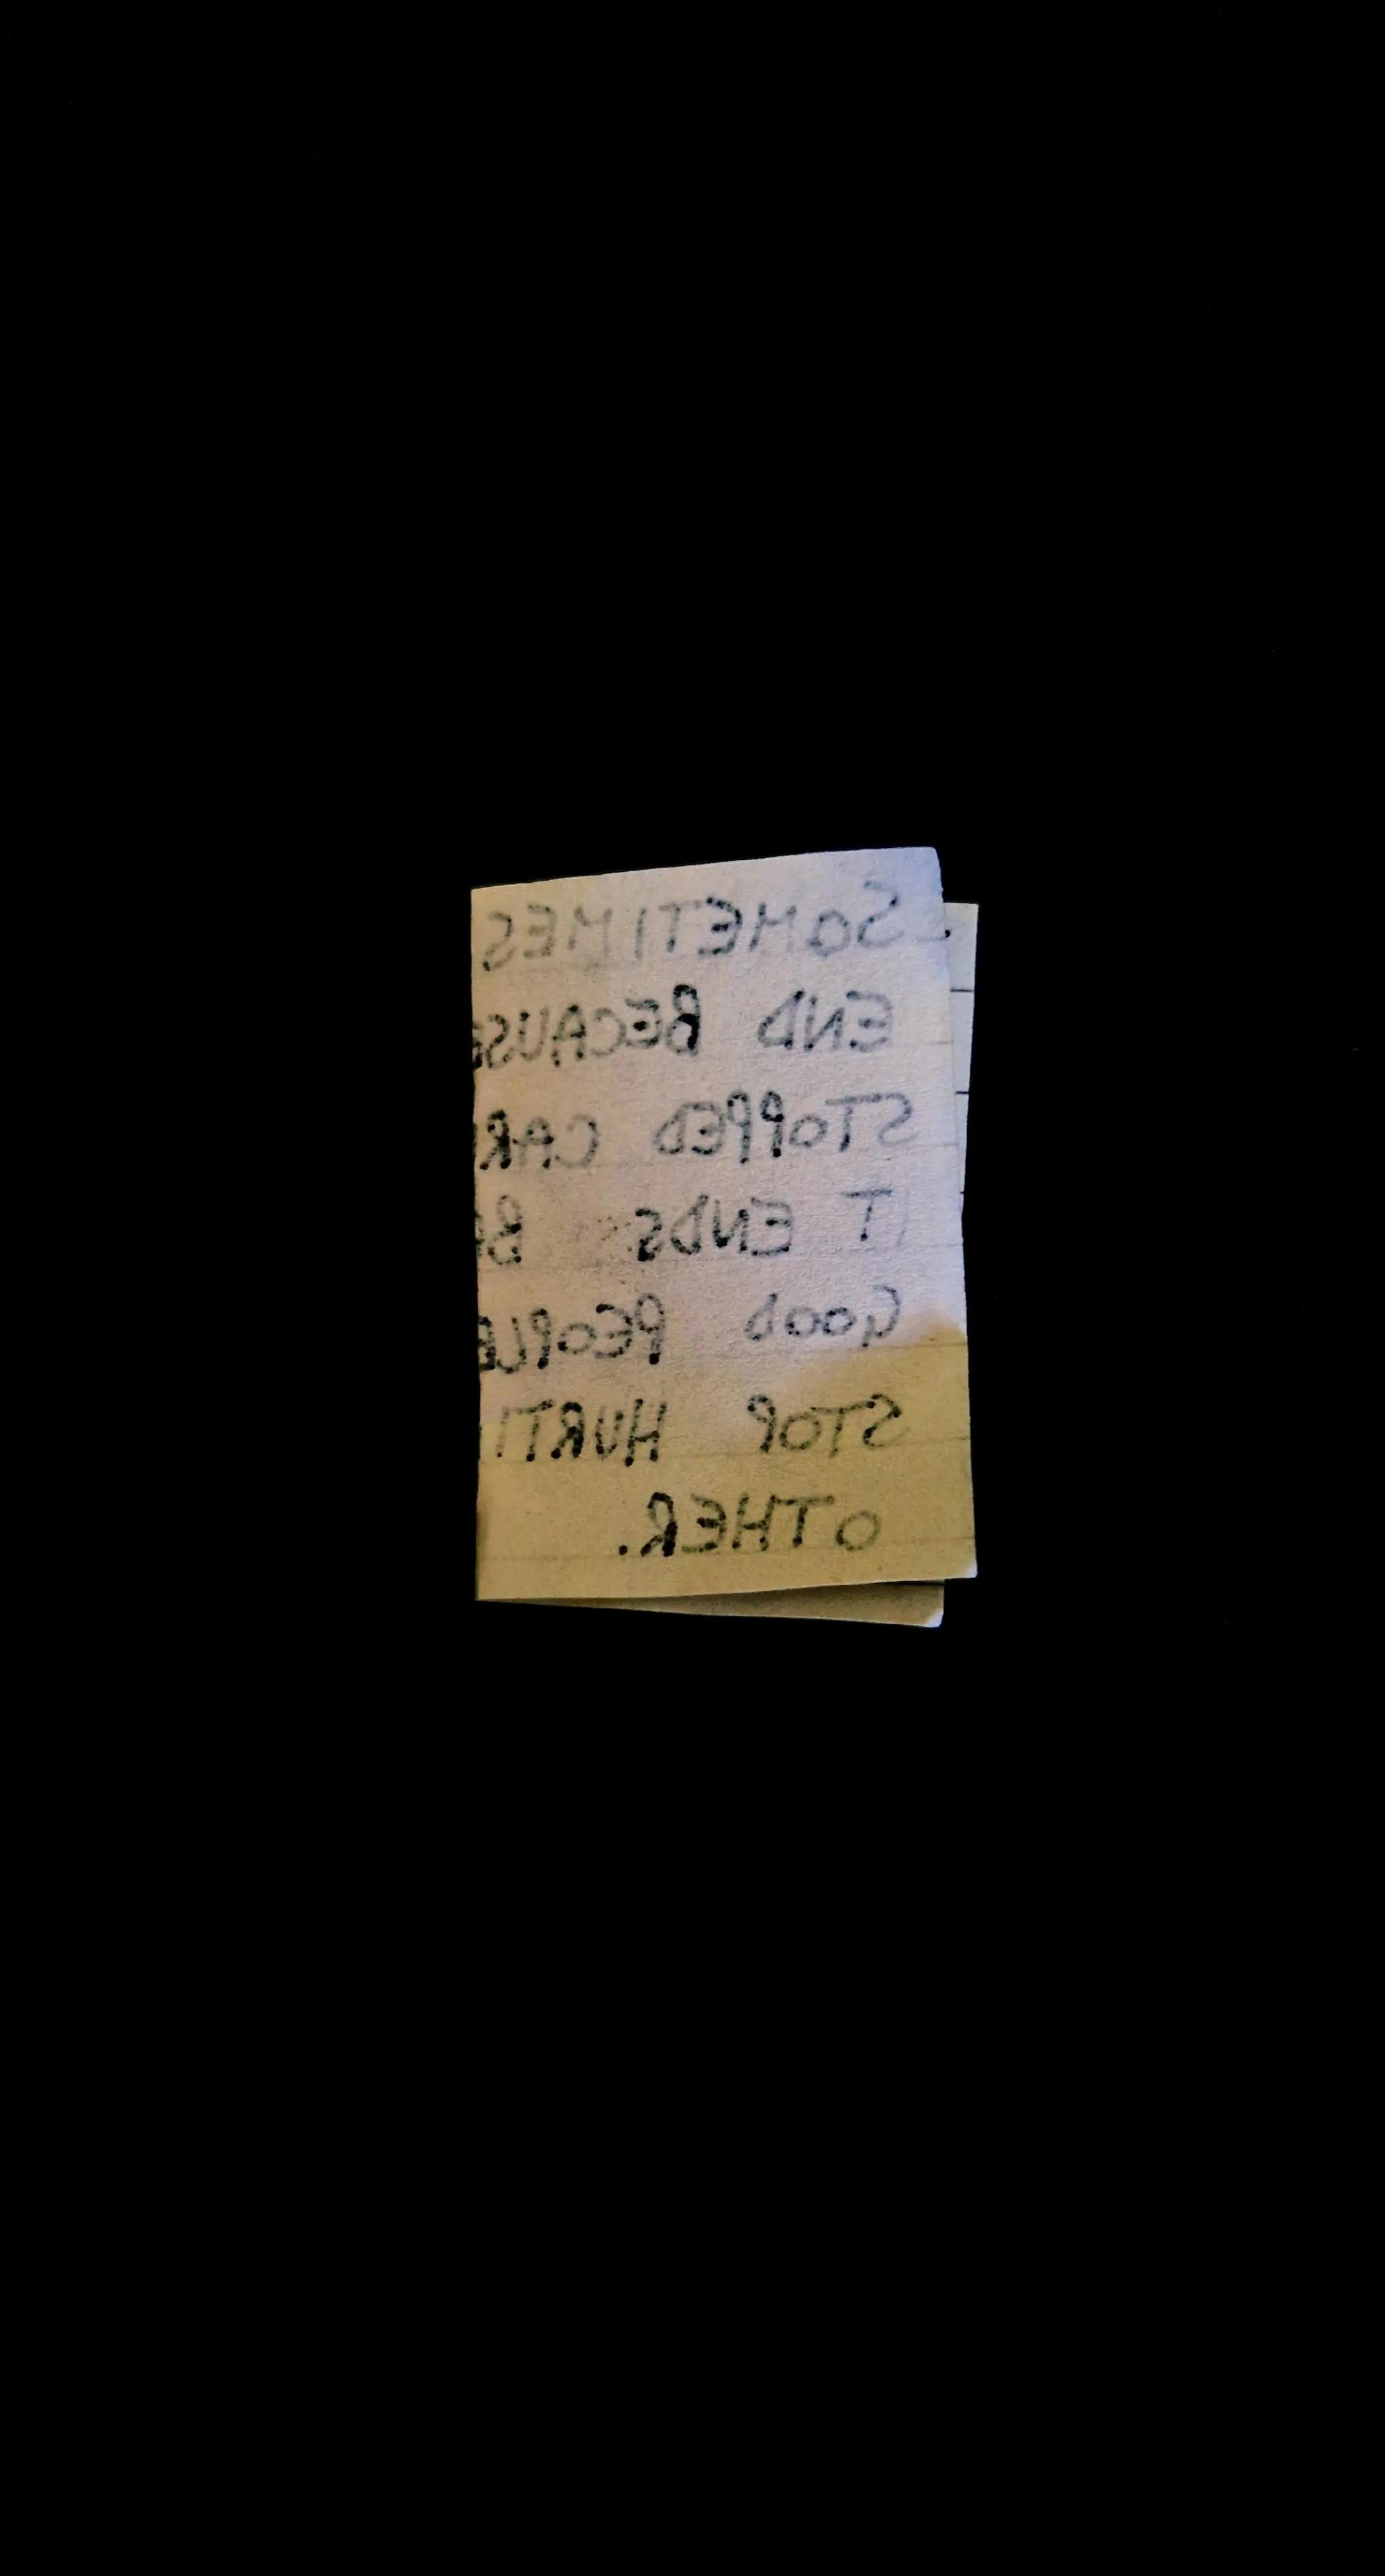 SOMETIMES
END BECAUSE
STOPPED CAR
IT ENDS
GOOD PEOPLE
STOP HURTI
OTHER.